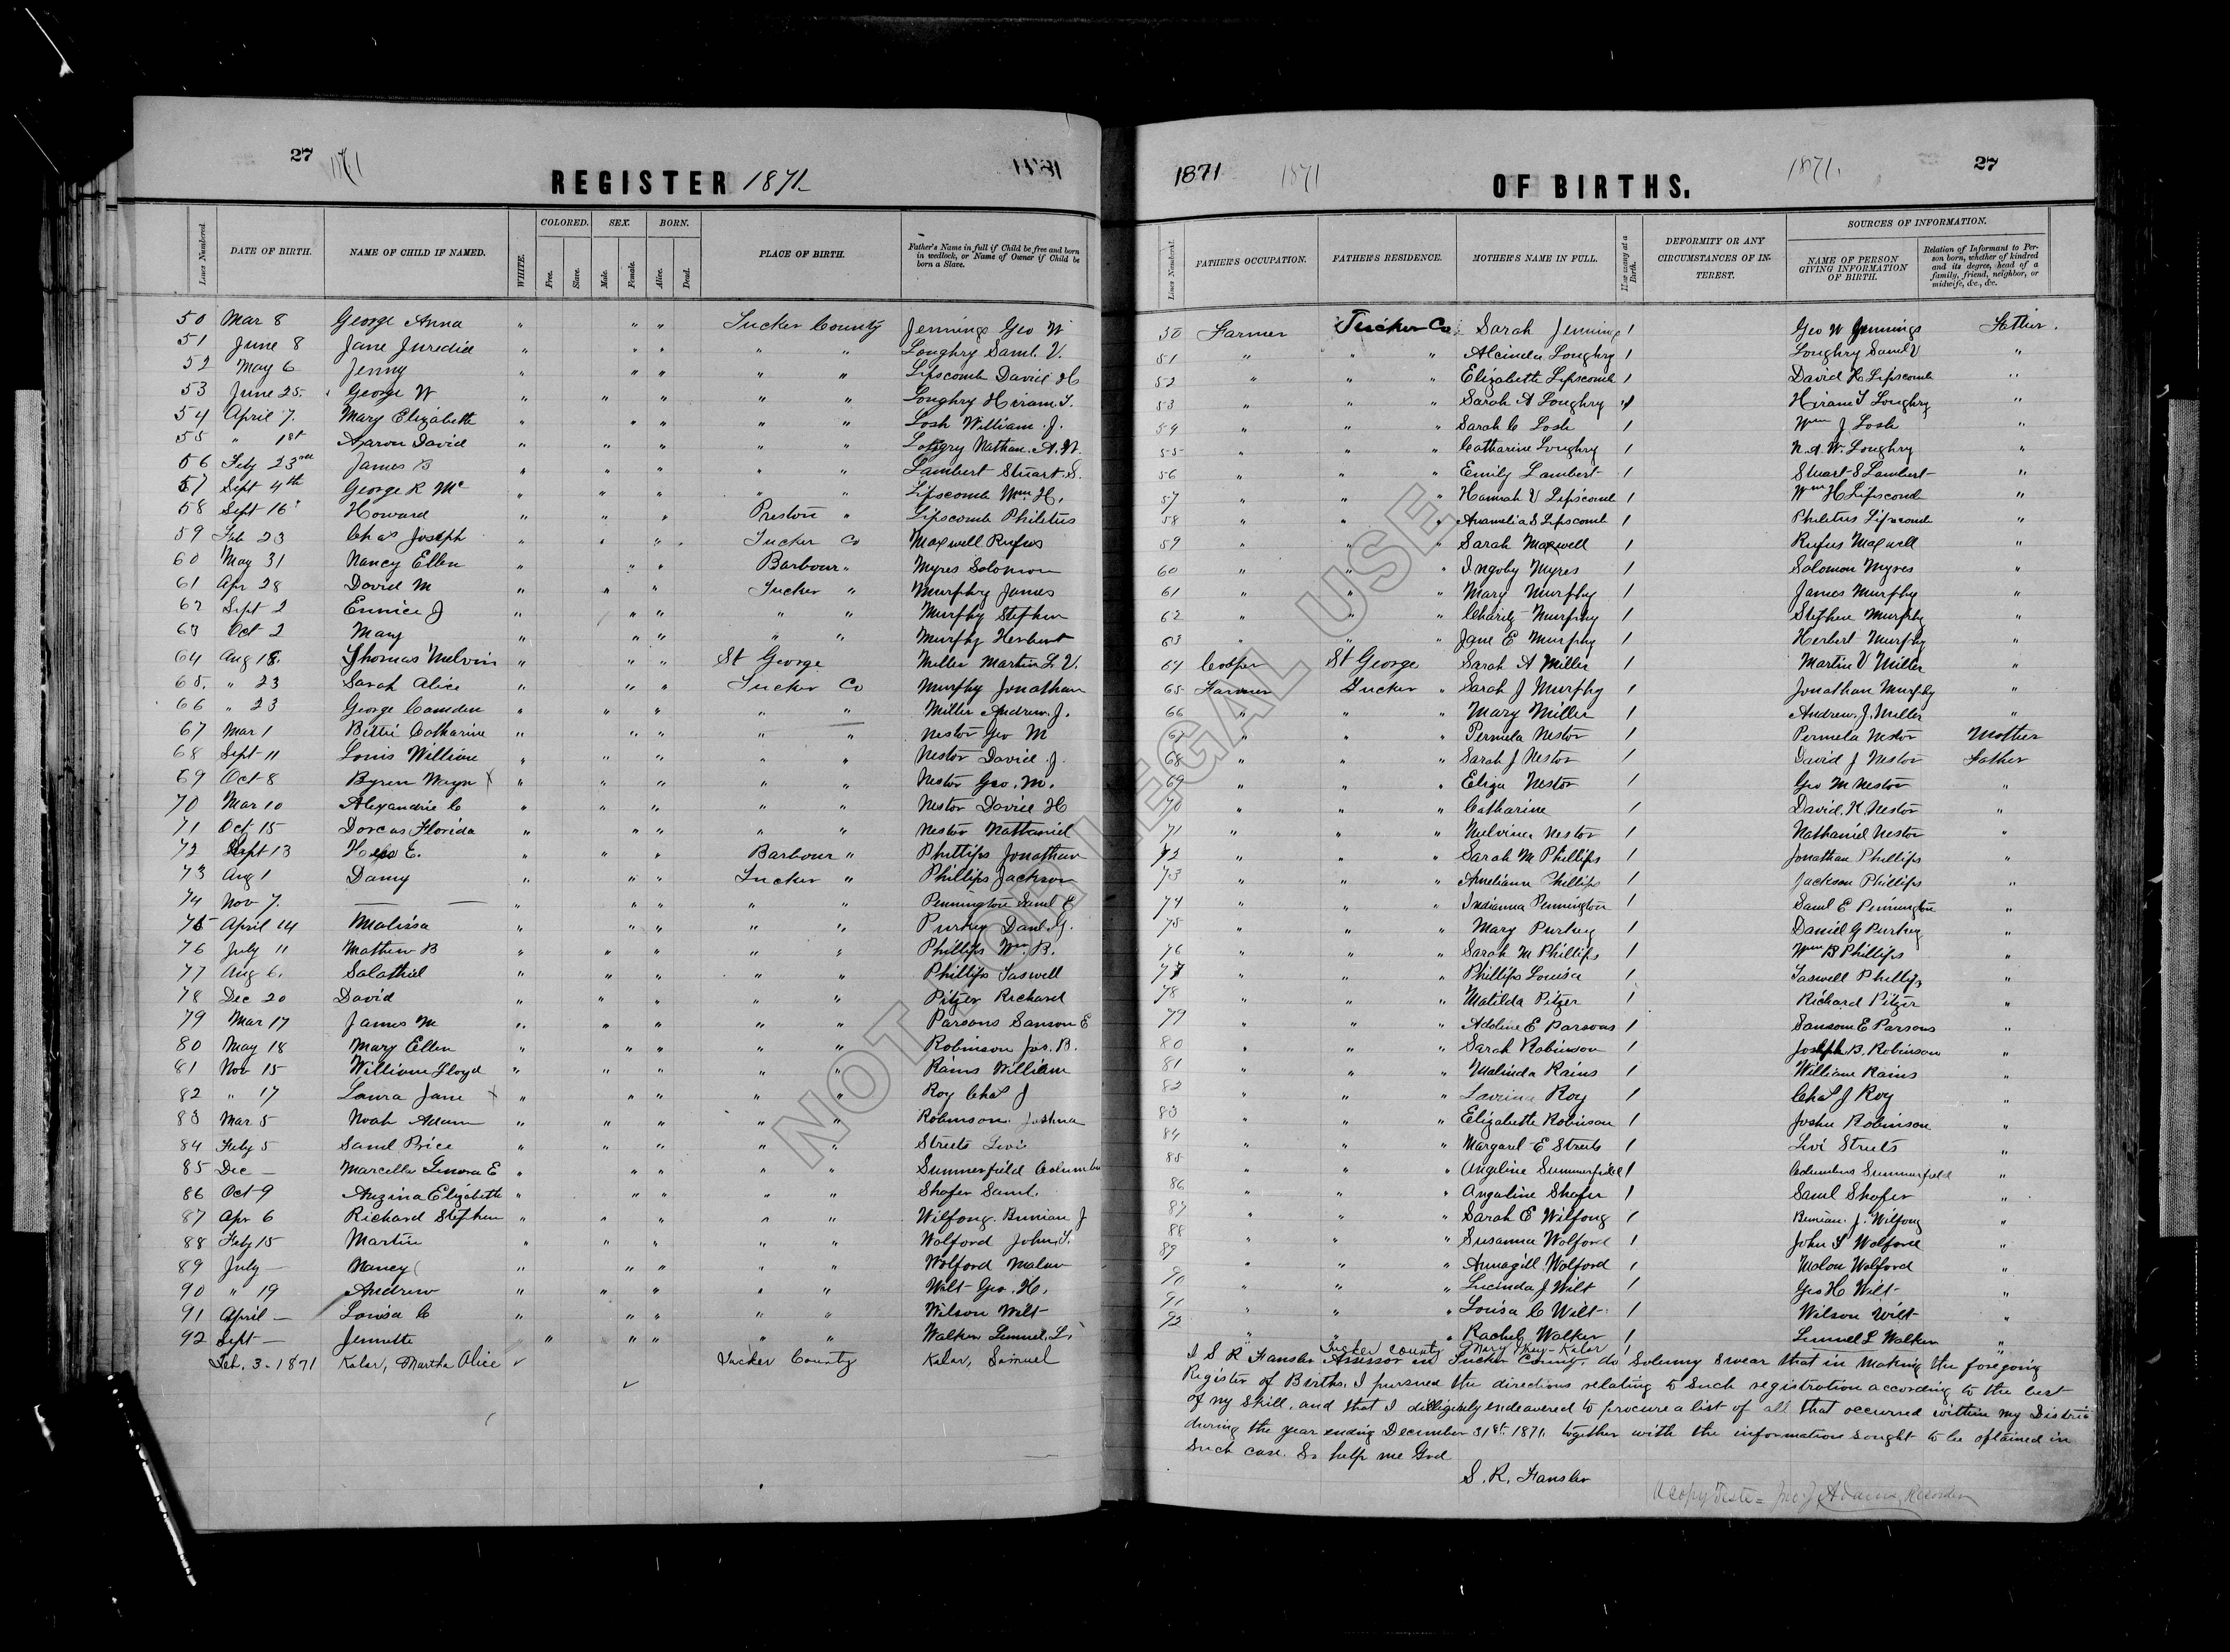 27 1871 1881
REGISTER 1871
Lines Numbered. DATE OF BIRTH. NAME OF CHILD IF NAMED. WHITE. COLORED. Free. Slave. SEX. Male. Female. BORN. Alive. Dead. PLACE OF BIRTH. Father's Name in full if Child be free and born in wedlock, or Name of Owner if Child be born a Slave.
50 Mar 8 George Anna " " " Tucker County Jennings Geo W
51 June 8 Jane Juredia " " " " " Loughry Saml. V.
52 May 6 Jenny " " " " " Lipscomb David H
53 June 25. George W " " " " " Loughry Hiram T.
54 April 7. Mary Elizabeth " " " " " Losh William J.
55 " 1st Aaron David " " " " " Loughry Nathan A. W.
56 Feby 23rd James B " " " " " Lambert Stuart S.
57 Sept 4th George R Mc " " " " " Lipscomb Wm H.
58 Sept 16 Howard " " " Preston " Lipscomb Philetus
59 Feb 23 Chas Joseph " " " Tucker Co Maxwell Rufus
60 May 31 Nancy Ellen " " " Barbour " Myres Solomon
61 Apr 28 David M " " " Tucker " Murphy James
62 Sept 2 Eunice J " " " " " Murphy Stephen
63 Oct 2 Mary " " " " " Murphy Herbert
64 Aug 18. Thomas Melvin " " " St George Miller Martin L. V.
65. " 23 Sarah Alice " " " Tucker Co Murphy Jonathan
66 " 23 George Camden " " " " " Miller Andrew. J.
67 Mar 1 Bettie Catharine " " " " " Nestor Geo M
68 Sept 11 Louis William " " " " " Nestor David J.
69 Oct 8 Byren Wayn " " " " " Nestor Geo. M.
70 Mar 10 Alexandrie C " " " " " Nestor David H
71 Oct 15 Dorcas Florida " " " " " Nestor Nathaniel
72 Sept 13 E. " " " Barbour " Phillips Jonathan
73 Aug 1 Damy " " " Tucker " Phillips Jackson
74 Nov 7. — " " " " " Pennington Saml E
75 April 14 Malissa " " " " " Purkey Danl. G.
76 July 11 Mathew B " " " " " Phillips Wm. B.
77 Aug 6. Salathiel " " " " " Phillips Taswell
78 Dec 20 David " " " " " Pitzer Richard
79 Mar 17 James M " " " " " Parsons Sansom E
80 May 18 Mary Ellen " " " " " Robinson Jos. B.
81 Nov 15 William Floyd " " " " " Rains William
82 " 17 Laura Jane " " " " " Roy Chas J
83 Mar 5 Noah Adam " " " " " Robinson Joshua
84 Feby 5 Saml Price " " " " " Streets Levi
85 Dec — Marcella Lenora E " " " " " Summerfield Columbus
86 Oct 9 Auzina Elizabeth " " " " " Shafer Saml.
87 Apr 6 Richard Stephen " " " " " Wilfong Bunian J
88 Feby 15 Martin " " " " " Wolford John. S.
89 July — Nancy " " " " " Wolford Malon
90 " 19 Andrew " " " " " Wilt Geo. H.
91 April — Louisa C " " " " " Wilson Wilt
92 Sept — Jennette " " " " " Walker Lemuel L.
Feb. 3 - 1871 Kalar, Martha Alice ✓ Tucker County Kalar, Samuel
1871 1871 1871. 27
OF BIRTHS.
Lines Numbered. FATHER'S OCCUPATION. FATHER'S RESIDENCE. MOTHER'S NAME IN FULL. DEFORMITY OR ANY CIRCUMSTANCES OF INTEREST. SOURCES OF INFORMATION. NAME OF PERSON GIVING INFORMATION OF BIRTH. Relation of Informant to Person born, whether of kindred and its degree, head of a family, friend, neighbor, or midwife, &c., &c.
50 Farmer Tucker Co Sarah Jennings 1 Geo W Jennings Father.
51 " " " Alcinda Loughry 1 Loughry Saml V "
52 " " " Elizabeth Lipscomb 1 David H Lipscomb "
53 " " " Sarah A Loughry 1 Hiram T Loughry "
54 " " " Sarah C Losh 1 Wm J Losh "
55 " " " Catharine Loughry 1 N. A. W. Loughry "
56 " " " Emily Lambert 1 Stuart S Lambert "
57 " " " Hannah V Lipscomb 1 Wm H Lipscomb "
58 " " " Anamelia S Lipscomb 1 Philetus Lipscomb "
59 " " " Sarah Maxwell 1 Rufus Maxwell "
60 " " " Ingoby Myres 1 Solomon Myres "
61 " " " Mary Murphy 1 James Murphy "
62 " " " Charity Murphy 1 Stephen Murphy "
63 " " " Jane E Murphy 1 Herbert Murphy "
64 Cooper St George Sarah A Miller 1 Martin V Miller "
65 Farmer Tucker " Sarah J Murphy 1 Jonathan Murphy "
66 " " " Mary Miller 1 Andrew. J. Miller "
67 " " " Permela Nestor 1 Permela Nestor Mother
68 " " " Sarah J Nestor 1 David J Nestor Father
69 " " " Eliza Nestor 1 Geo M Nestor "
70 " " " Catharine 1 David. H. Nestor "
71 " " " Melvina Nestor 1 Nathaniel Nestor "
72 " " " Sarah M Phillips 1 Jonathan Phillips "
73 " " " Ameliann Phillips 1 Jackson Phillips "
74 " " " Indianna Pennington 1 Saml E Pennington "
75 " " " Mary Purkey 1 Daniel G Purkey "
76 " " " Sarah M Phillips 1 Wm B Phillips "
77 " " " Phillips Louisa 1 Taswell Phillips "
78 " " " Matilda Pitzer 1 Richard Pitzer "
79 " " " Adoline E Parsons 1 Sansom E Parsons "
80 " " " Sarah Robinson 1 Joseph B. Robinson "
81 " " " Malinda Rains 1 William Rains "
82 " " " Lavina Roy 1 Chas J Roy "
83 " " " Elizabeth Robinson 1 Joshu Robinson "
84 " " " Margaret E Streets 1 Levi Streets "
85 " " " Angeline Summerfield 1 Columbus Summerfield "
86 " " " Angaline Shafer 1 Saml Shafer "
87 " " " Sarah E Wilfong 1 Bunian. J. Wilfong "
88 " " " Susanna Wolford 1 John S Wolford "
89 " " " Annagill Wolford 1 Malon Wolford "
90 " " " Lucinda J Wilt 1 Geo H Wilt "
91 " " " Louisa C Wilt 1 Wilson Wilt "
92 " " " Rachel Walker 1 Lemuel L Walker "
Tucker County Mary Key-Kalar 1 "
I S R Fansler Assessor in Tucker County, do Solemny swear that in making the foregoing
Register of Births, I pursued the directions relating to such registration according to the best
of my skill, and that I dilligently endeavered to procure a list of all that occurred within my District
during the year ending December 31st 1871, together with the information sought to be obtained in
such case. So help me God
S. R. Fansler
A copy Teste = Jno. J. Adams, Recorder
NOT FOR LEGAL USE